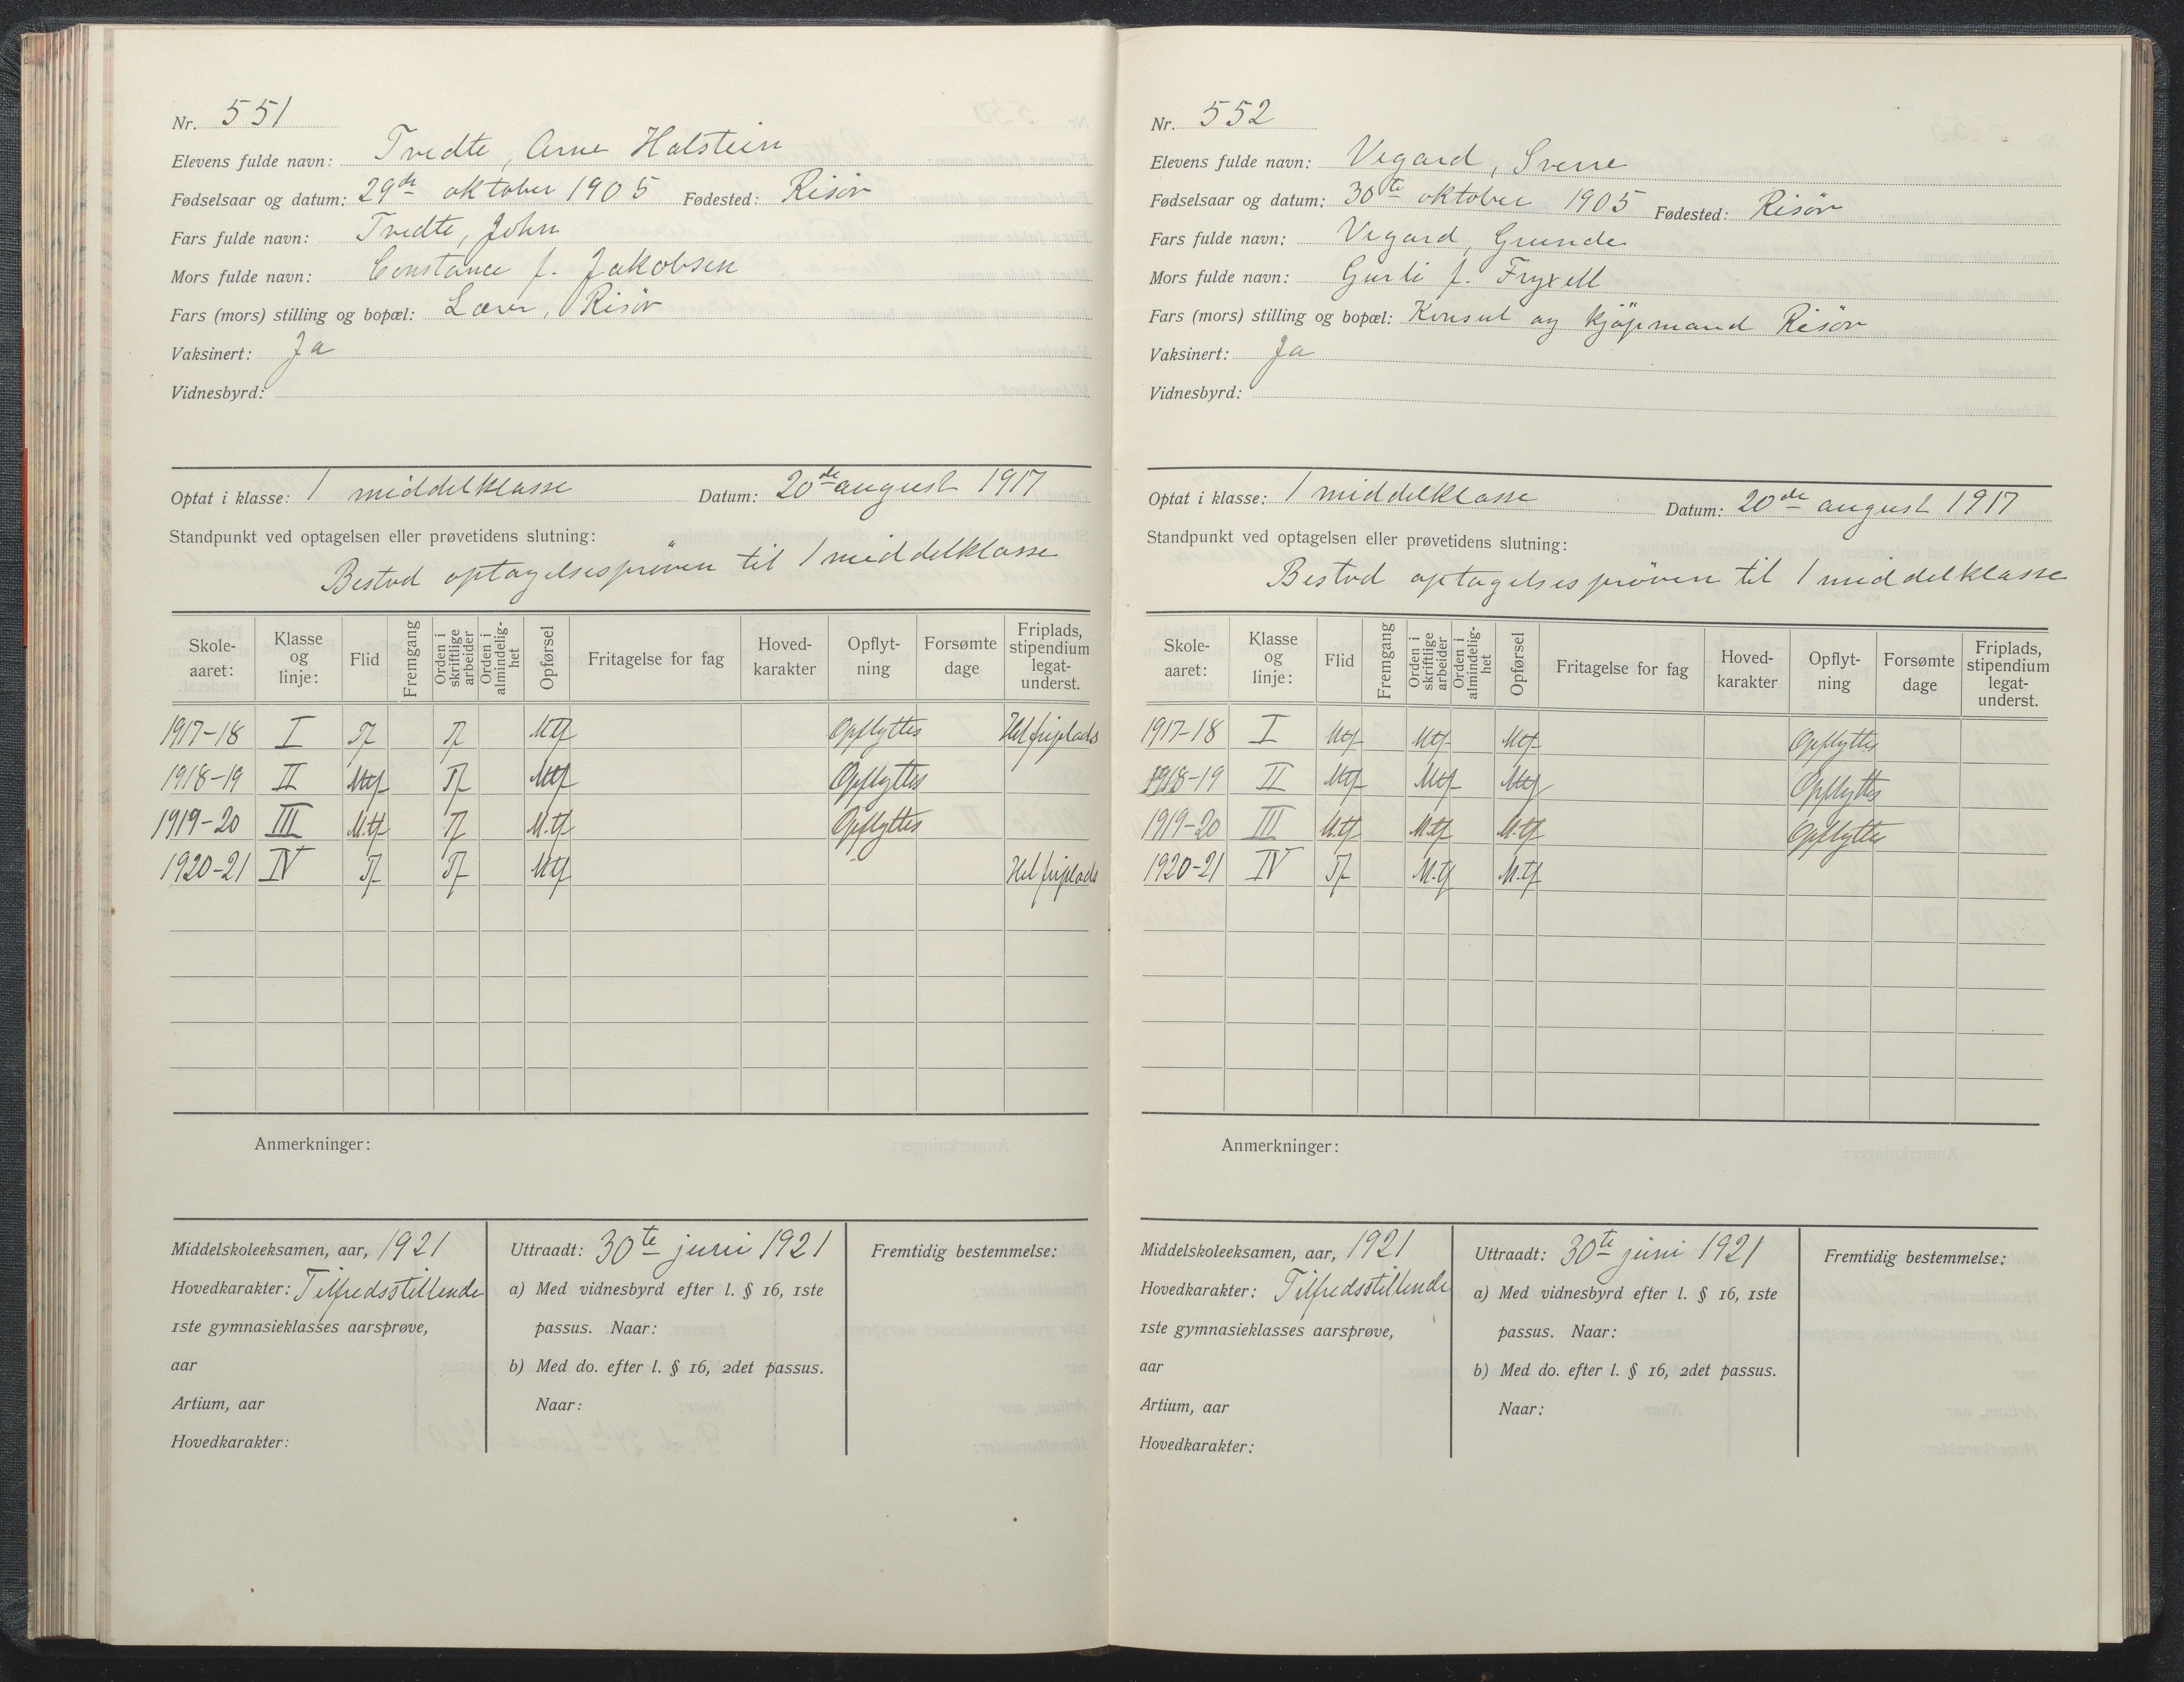 Nr. 551
Elevens fulde navn: Tvedte, Arne Holstein
Fødselsaar og datum: 29de oktober 1905 Fødested: Risör
Fars fulde navn: Tvedte, John
Mors fulde navn: Constance f. Jakobsen
Fars (mors) stilling og bopæl: Lærer, Risör
Vaksinert: Ja
Vidnesbyrd:
Optat i klasse: 1 middelklasse Datum: 20de august 1917
Standpunkt ved optagelsen eller prøvetidens slutning:
Bestod optagelsesprøven til 1 middelklasse
Skole-aaret: Klasse og linje: Flid Fremgang Orden i skriftlige arbeider Orden i almindelig-het Opførsel Fritagelse for fag Hoved-karakter Opflyt-ning Forsømte dage Friplads, stipendium legat-underst.
1917-18 I Tf Tf Mtf Opflyttes Hel friplads
1918-19 II Mtf Tf Mtf Opflyttes
1919-20 III M.tf Tf M.tf Opflyttes
1920-21 IV Tf Tf Mtf Hel friplads
Anmerkninger:
Middelskoleeksamen, aar, 1921
Hovedkarakter: Tilfredsstillende
1ste gymnasieklasses aarsprøve,
aar
Artium, aar
Hovedkarakter:
Uttraadt: 30te juni 1921
a) Med vidnesbyrd efter l. § 16, 1ste
passus. Naar:
b) Med do. efter l. § 16, 2det passus.
Naar:
Fremtidig bestemmelse:
Nr. 552
Elevens fulde navn: Vegard, Sverre
Fødselsaar og datum: 30te oktober 1905 Fødested: Risör
Fars fulde navn: Vegard, Grunde
Mors fulde navn: Gurli f. Fryxell
Fars (mors) stilling og bopæl: Konsul og kjöpmand Risör
Vaksinert: Ja
Vidnesbyrd:
Optat i klasse: 1 middelklasse Datum: 20de august 1917
Standpunkt ved optagelsen eller prøvetidens slutning:
Bestod optagelsespröven til 1 middelklasse
Skole-aaret: Klasse og linje: Flid Fremgang Orden i skriftlige arbeider Orden i almindelig-het Opførsel Fritagelse for fag Hoved-karakter Opflyt-ning Forsømte dage Friplads, stipendium legat-underst.
1917-18 I Mtf Mtf Mtf Opflyttes
1918-19 II Mtf Mtf Mtf Opflyttes
1919-20 III M.tf M.tf M.tf Opflyttes
1920-21 IV Tf M.tf M.tf
Anmerkninger:
Middelskoleeksamen, aar, 1921
Hovedkarakter: Tilfredsstillende
1ste gymnasieklasses aarsprøve,
aar
Artium, aar
Hovedkarakter:
Uttraadt: 30te juni 1921
a) Med vidnesbyrd efter l. § 16, 1ste
passus. Naar:
b) Med do. efter l. § 16, 2det passus.
Naar:
Fremtidig bestemmelse: